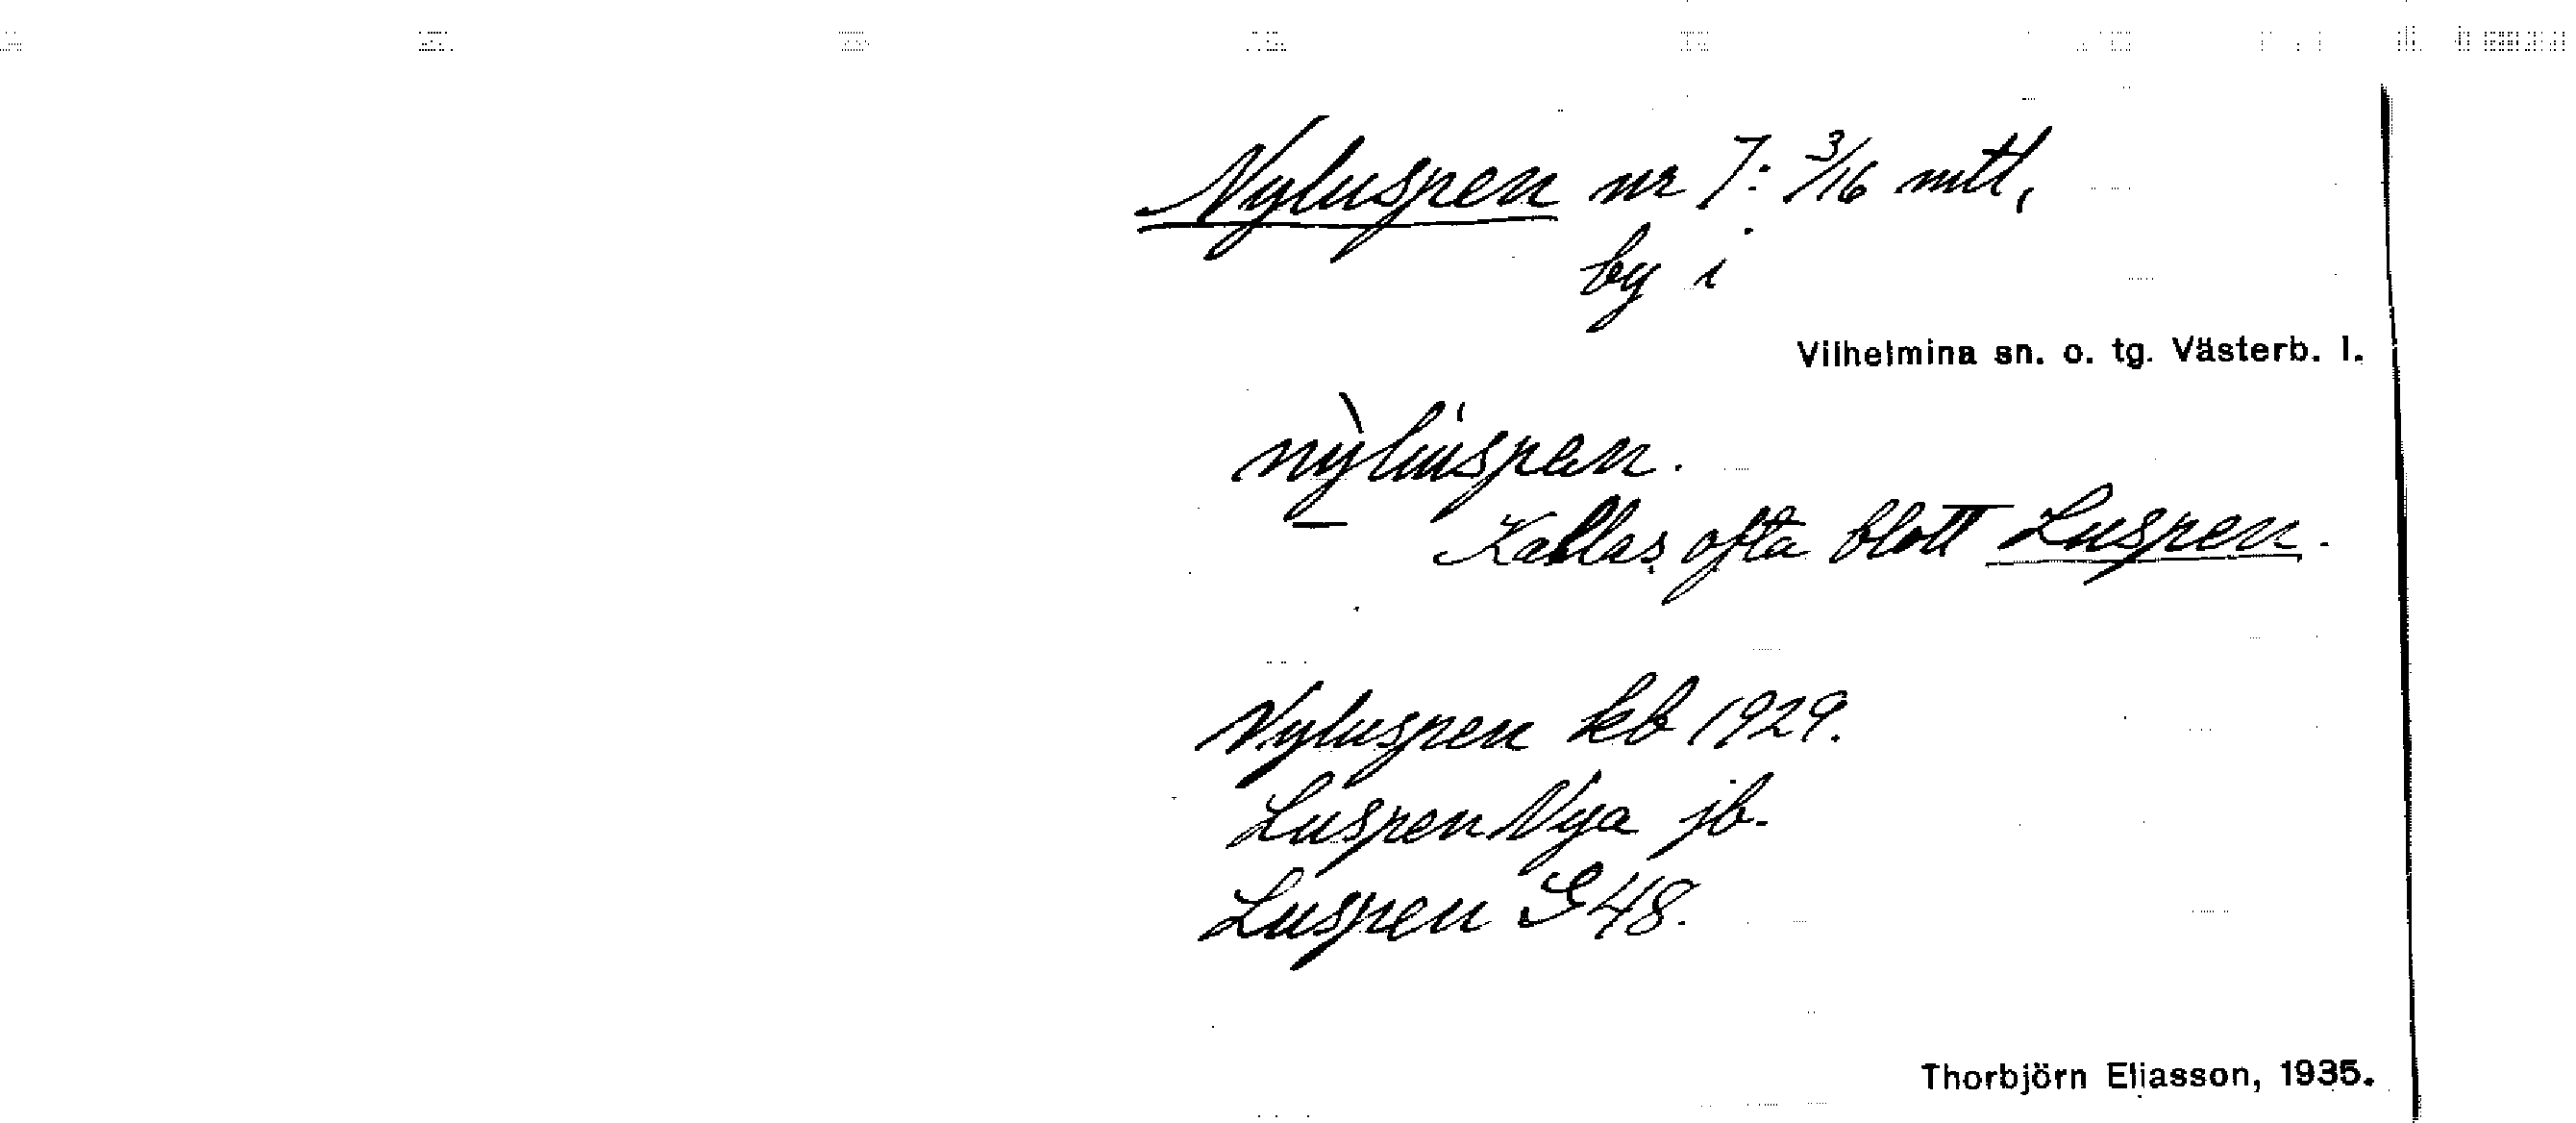 Nyluspen nr 7: 3/16 mtl,
by i
Vilhelmina sn. o. tg. Västerb. l.
nỳluspen.
Kallas ofta blott Luspen.
Nyluspen kb 1929.
Luspen Nya jb.
Luspen G 48.
Thorbjörn Eliasson, 1935.